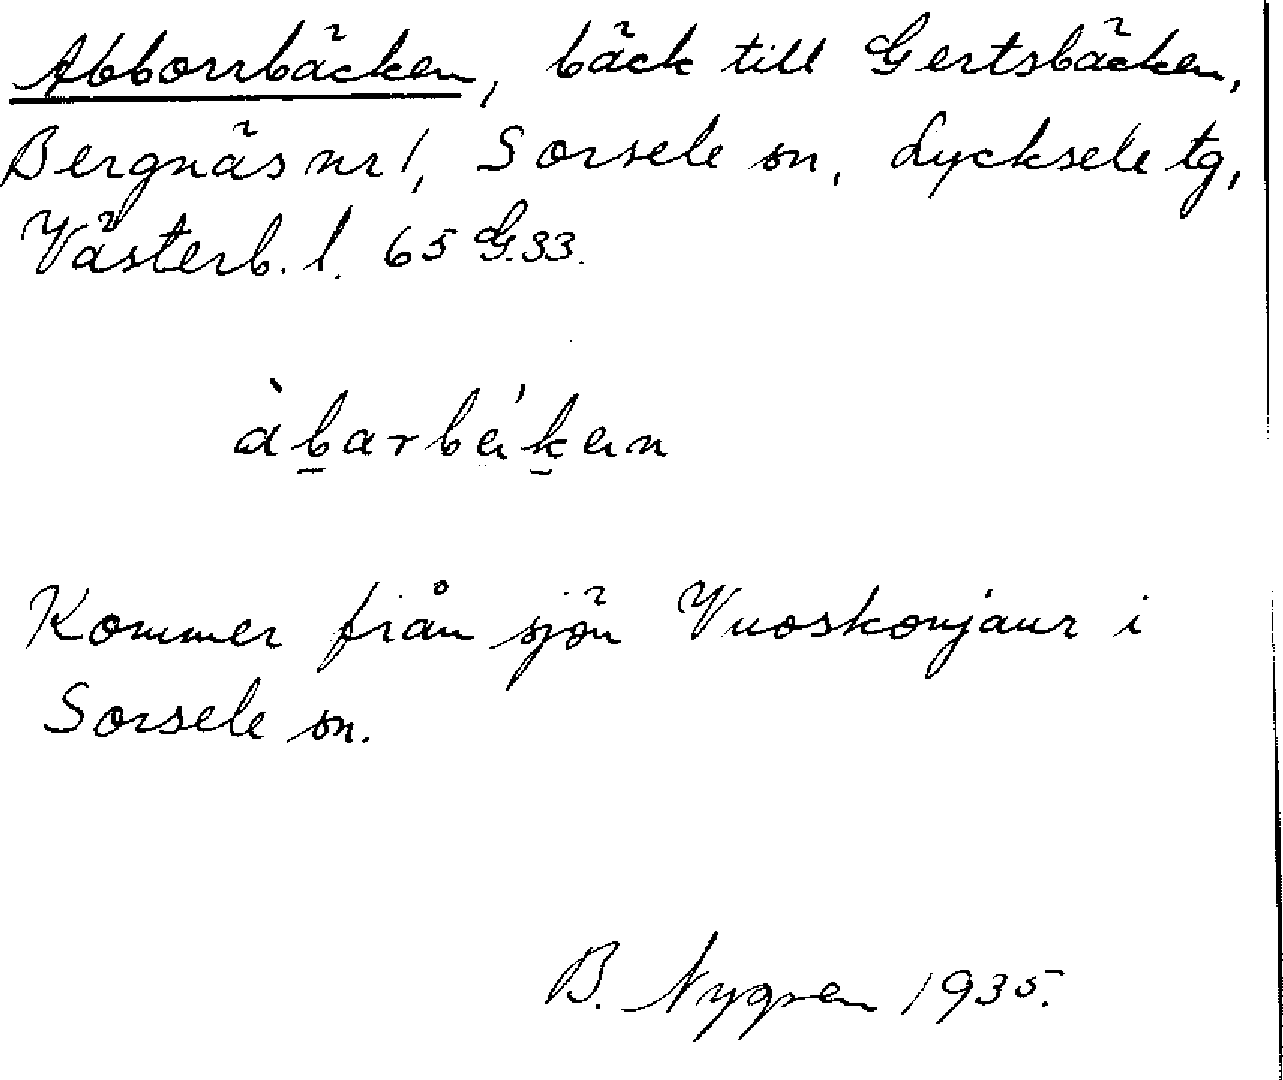 Abborrbäcken, bäck till Gertsbäcken,
Bergnäs nr 1, Sorsele sn, Lycksele tg,
Västerb. l. 65 G.33.
àbarbékən
Kommer från sjön Vuoskonjaur i
Sorsele sn.
B. Nygren 1935.